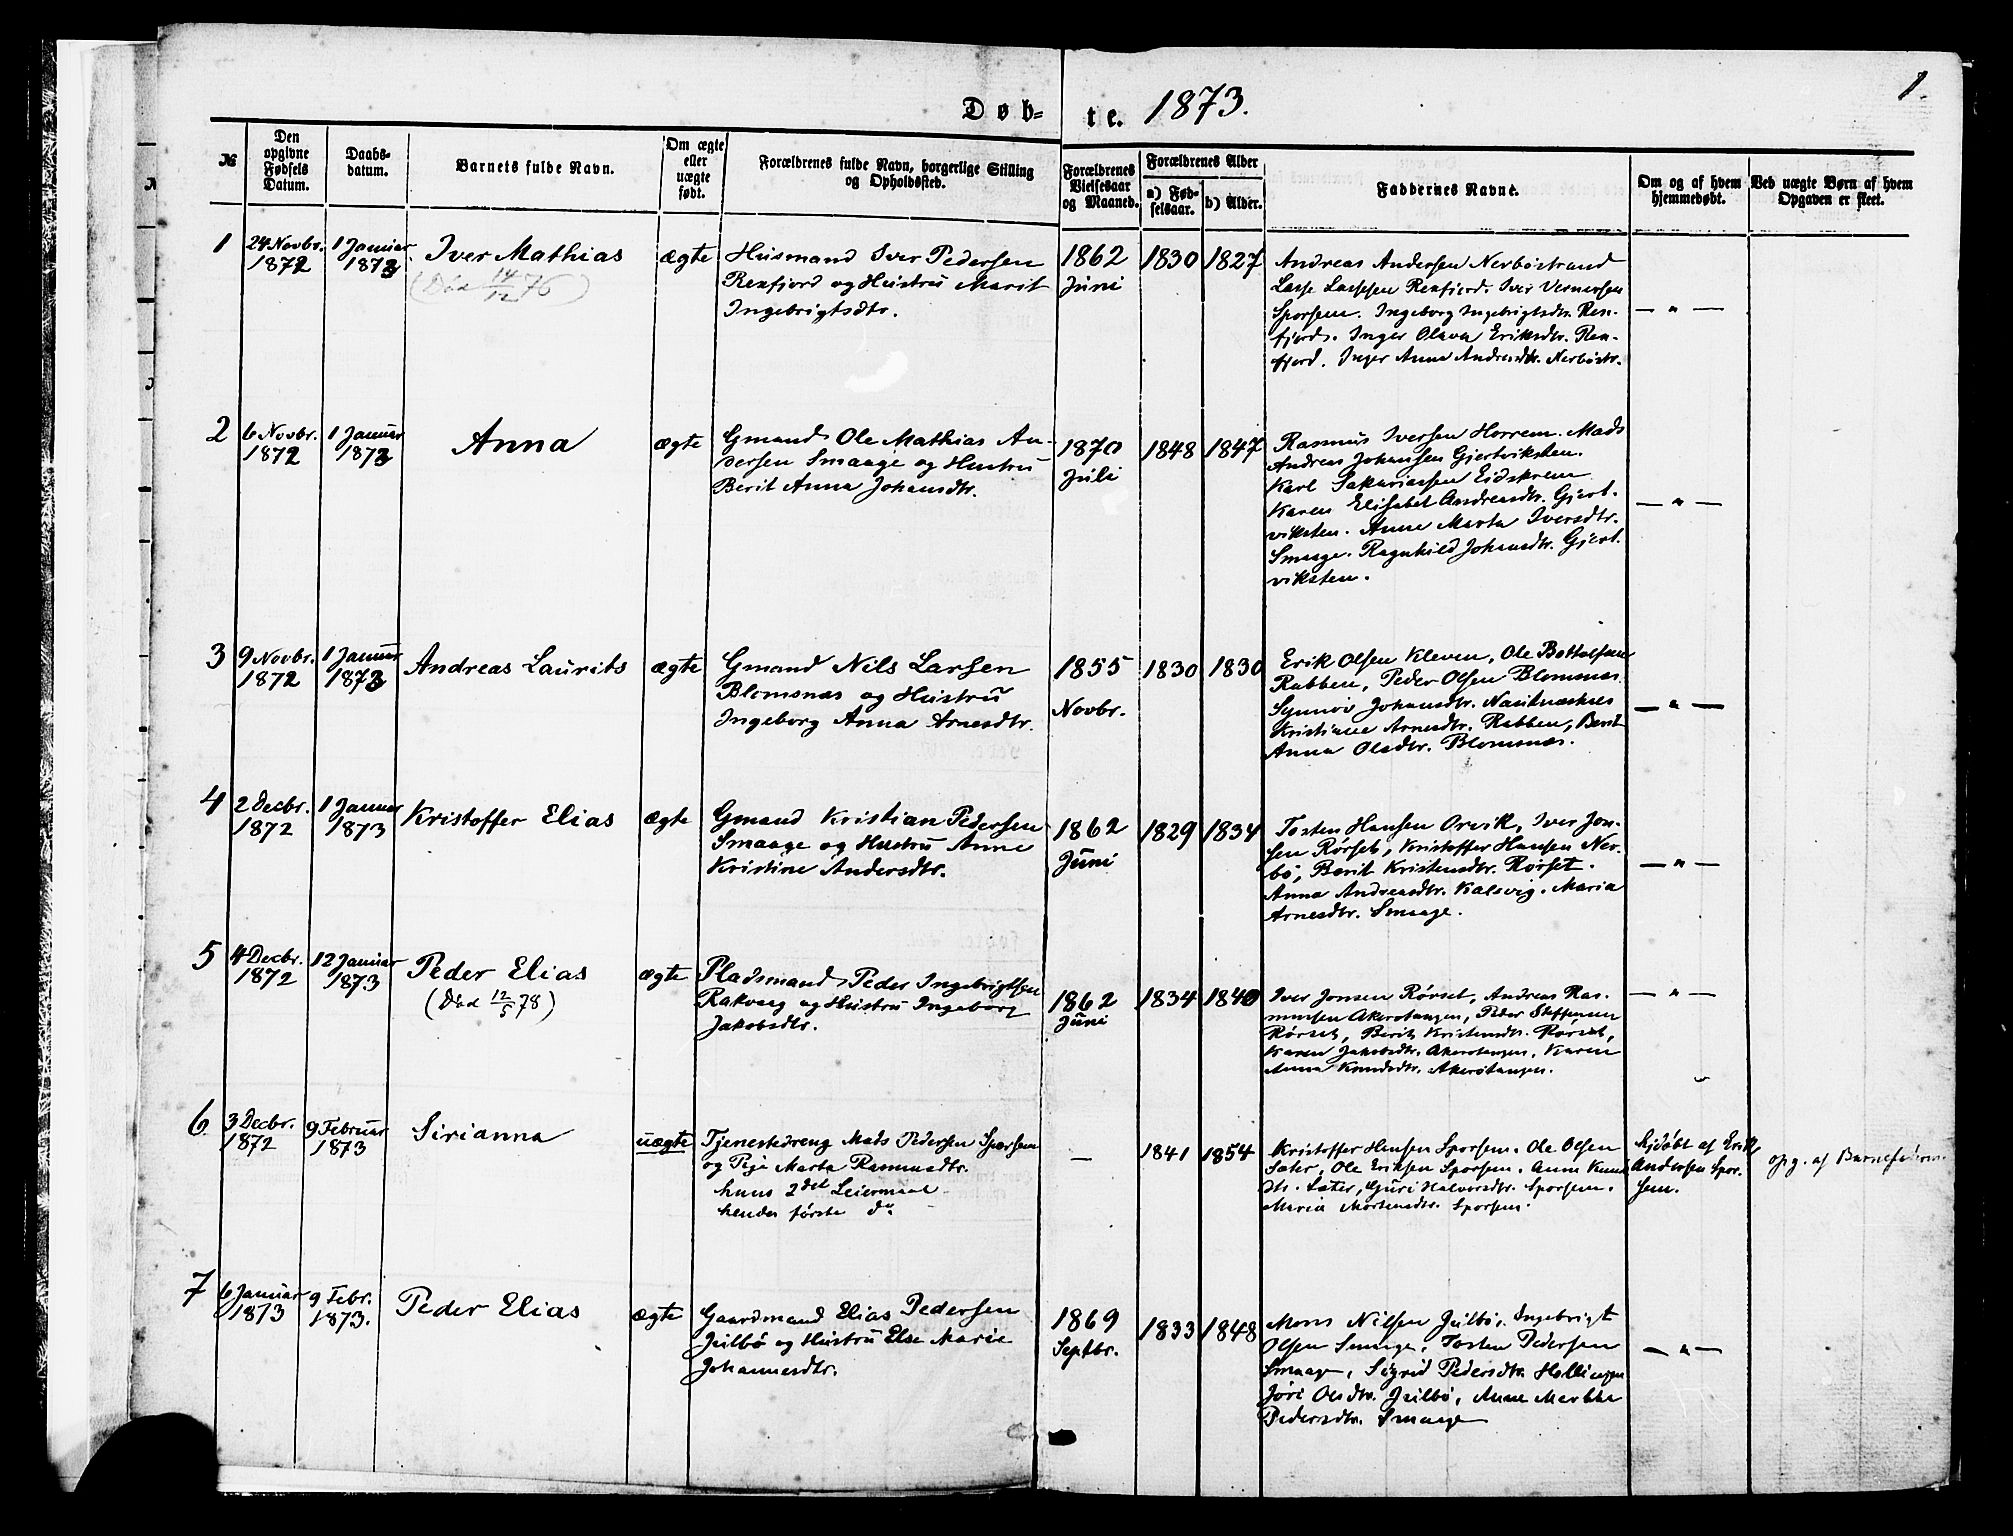 Døb-
te. 1873.
1.
№
Den opgivne Fødsels Datum.
Daabs-datum.
Barnets fulde Navn.
Om ægte eller uægte født.
Forældrenes fulde Navn, borgerlige Stilling og Opholdssted.
Forældrenes Vielsesaar og Maaned.
Forældrenes Alder
a) Fød-selsaar.
b) Alder.
Faddernes Navne.
Om og af hvem hjemmedøbt.
Ved uægte Børn af hvem Opgaven er skeet.
1
24 Novbr.
1872
1 Januar
1873
Iver Mathias
(Død 14/12 76)
ægte
Husmand Iver Pedersen
Renfjord og Hustru Marit
Ingebrigtsdtr.
1862
Juni
1830
1827
Andreas Andersen Nerbøstrand
Lasse Lassesen Renfjord. Iver
Sporsem. Ingeborg Ingebrigtsdtr. Ren-
fjord. Inger Olava Eriksdtr. Ren-
fjord. Inger Anna Andersdtr. Nerbøstr.
— " —
2
6 Novbr.
1872
1 Januar
1873
Anna
ægte
Gmand Ole Mathias An-
dersen Smaage og Hustru
Berit Anna Johansdtr.
1870
Juli
1848
1847
Rasmus Iversen Horrem. Mads
Andreas Johansen Gjertviksten.
Karl Sakariassen Eidskrem
Karen Elisabet Andreasdtr. Gjert-
viksten. Anne Marta Iversdtr.
Smaage. Ragnhild Johansdtr. Gjert-
viksten.
— " —
3
9 Novbr.
1872
1 Januar
1873
Andreas Laurits
ægte
Gmand Nils Larsen
Blomsnæs og Hustru
Ingeborg Anna Arnesdtr.
1855
Novbr.
1830
1830
Erik Olsen Kleven, Ole Bottolfsen
Rabben, Peder Olsen Blomsnæs
Synnøv Johansdtr.
Kristiane Arnesdtr. Rabben, Berit
Anna Olsdtr. Blomsnæs.
— " —
4
2 Decbr.
1872
1 Januar
1873
Kristoffer Elias
ægte
Gmand Kristian Pedersen
Smaage og Hustru Anne
Kristine Andersdtr.
1862
Juni
1829
1834
Tosten Hansen Orvik, Iver Jon-
sen Rørset, Kristoffer Hansen Ner-
bø, Berit Kristensdtr. Rørset.
Anna Andreasdtr. Kalsvig. Maria
Arnesdtr. Smaage.
— " —
5
4 Decbr.
1872
12 Januar
1873
Peder Elias
(Død 12/5 78)
ægte
Pladsmand Peder Ingebrigtsen
Rakvaag og Hustru Ingeborg
Jakobsdtr.
1862
Juni
1834
1840
Iver Jonsen Rørset, Andreas Ras-
mussen Akerøtangen, Peder Steffensen
Rørset, Berit Kristensdtr. Rørset,
Karen Jakobsdtr. Akerøtangen. Karen
Anna Knudsdtr. Akerøtangen.
— " —
6
3 Decbr.
1872
9 Februar
1873
Sirianna
uægte
Tjenestedreng Mads Pedersen Sporsem
og Pige Marta Rasmusdtr.
hans 2det Leiermaal
hendes første do
—
1841
1854
Kristoffer Hansen Sporsem. Ole Olsen
Sæter, Ole Eriksen Sporsem. Anne Knuds
dtr. Sæter, Guri Halvorsdtr. Sporsem.
Maria Mortensdtr. Sporsem.
hjdøbt af Erik
Andersen Spor-
sem.
opg. af Barnefaderen.
7
6 Januar
1873
9 Febr.
1873.
Peder Elias
ægte
Gaardmand Elias Pedersen
Julbø og Hustru Else Marie
Johannesdtr.
1869
Septbr.
1833
1848
Mons Nilsen Julbø, Ingebrigt
Olsen Smaage, Tosten Pedersen
Smaage, Sigrid Pedersdtr.
Jøri Olsdtr. Julbø, Anne Martha
Pedersdtr. Smaage
— " —